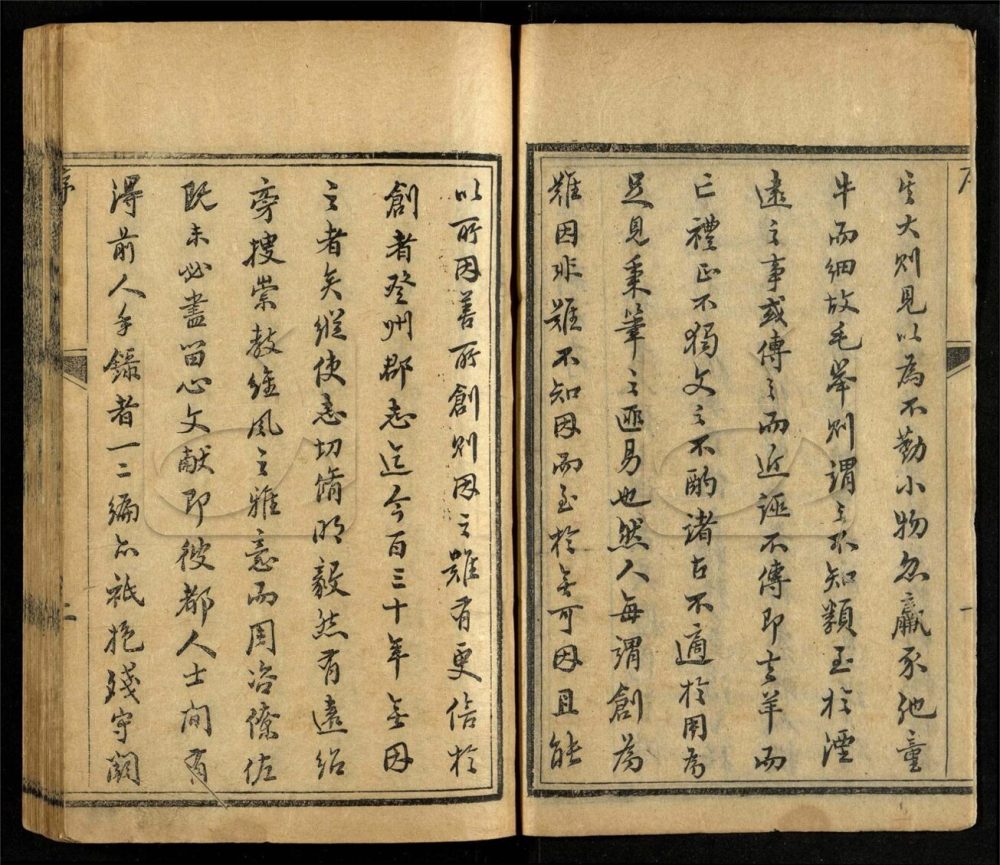 言大則見以為不勤小物忽羸豕牠童
牛而細故毛舉則謂之不知類至於湮
遠之事或傳之而近誣不傳即去羊而
亡禮正不獨文之不酌諸古不適於用為
足見秉筆之匪易也然人每謂創為
難因非難不知因而至於無可因且能
以所因善所創則因之難有更倍於
創者登州郡志迄今百三十年無因
之者矣縱使志切脩明毅然有遠紹
旁搜崇教維風之雅意而同治僚佐
既未必盡留心文献即彼都人士間有
得前人手録者一二編亦祇抱殘守闕
序
二
序
一